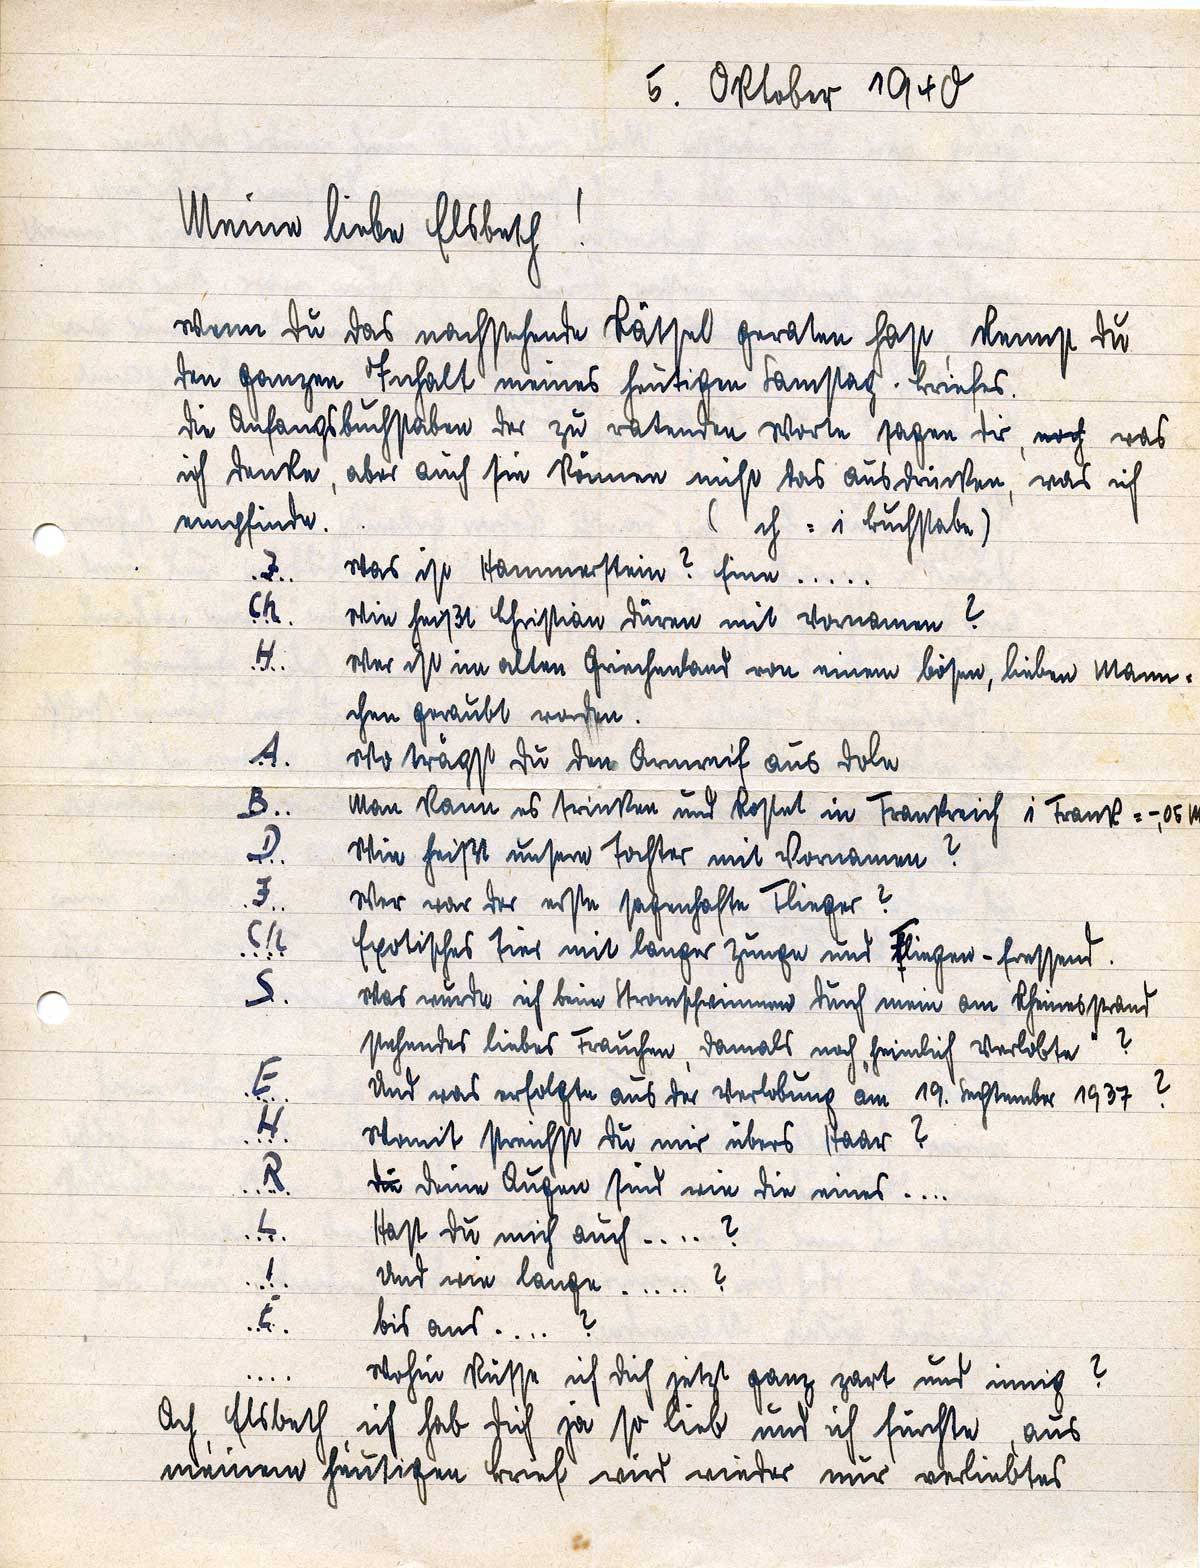 5. Oktober 1940
Meine liebe Elsbeth!
Wenn Du das nachstehende Rätsel geraten hast, kennst Du
den ganzen Inhalt meines heutigen Samstag-briefes.
Die Anfangsbuchstaben der zu ratenden Worte sagen dir, noch was
ich denke, aber auch sie können nicht das ausdrücken, was ich
empfinde. ( ch = 1 Buchstabe)
.I.. Was ist Hammerstein? Eine .....
Ch. Wie heißt Christian Düren mit Vornamen?
.H.. Wer ist im alten Griechenland von einem bösen, lieben Mann-
chen geraubt worden.
.A. Wo trägst Du den Armreif aus Dole
B.. Man kann es trinken und kostet in Frankreich 1 Frank = -,05 M
.D.. Wie heißt unsere Tochter mit Vornamen?
.I.. Wer war der erste sagenhafte Flieger?
Ch Exotisches Tier mit langer Zunge und Fliegen-fressend.
.S. Was wurde ich beim Stromschwimmen durch mein am Rheinesstrand
stehendes liebes Frauchen, damals noch "heimlich Verlobte"?
.E.. Und was erfolgte aus der Verlobung am 19. September 1937?
.H. Womit streichst Du mir übers Haar?
.R. Die Deine Augen sind wie die eines ....
.L. Hast Du mich auch ....?
.I. Und wie lange .....?
.E. bis ans ....?
.... Wohin küsse ich Dich jetzt ganz zart und innig?
Ach, Elsbeth, ich hab Dich ja so lieb und ich fürchte, aus
meinem heutigen Brief wird wieder nur verliebtes